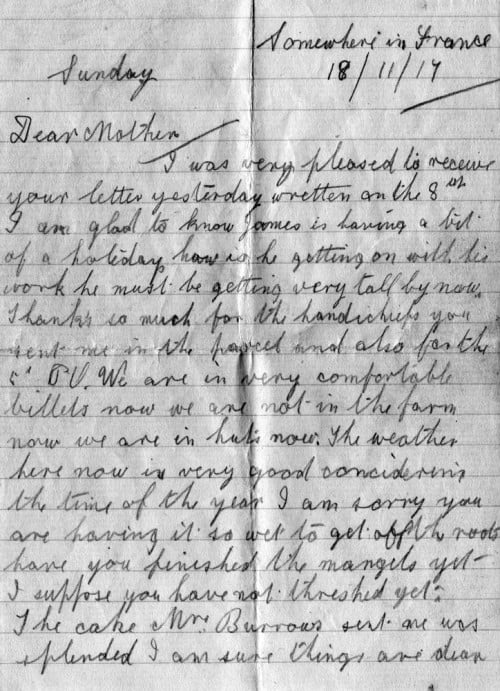 Somewhere in France
Sunday 18/11/17
Dear Mother
I was very pleased to receive
your letter yesterday wretten on the 8th
I am glad to know James is having a bit
of a holiday how is he getting on with his
work he must be getting very tall by now.
Thanks so much for the handichiefs you
sent me in the parcel and also for the
We are in very comfortable
billets now we are not in the farm
now we are in huts now. The weather
here now is very good concidering
the time of the year I am sorry you
are having it so wet to get off the roots
have you finished the mangels yet
I suppose you have not threshed yet.
The cake Mrs. Burrows sent me was
splended I am sure things are dear